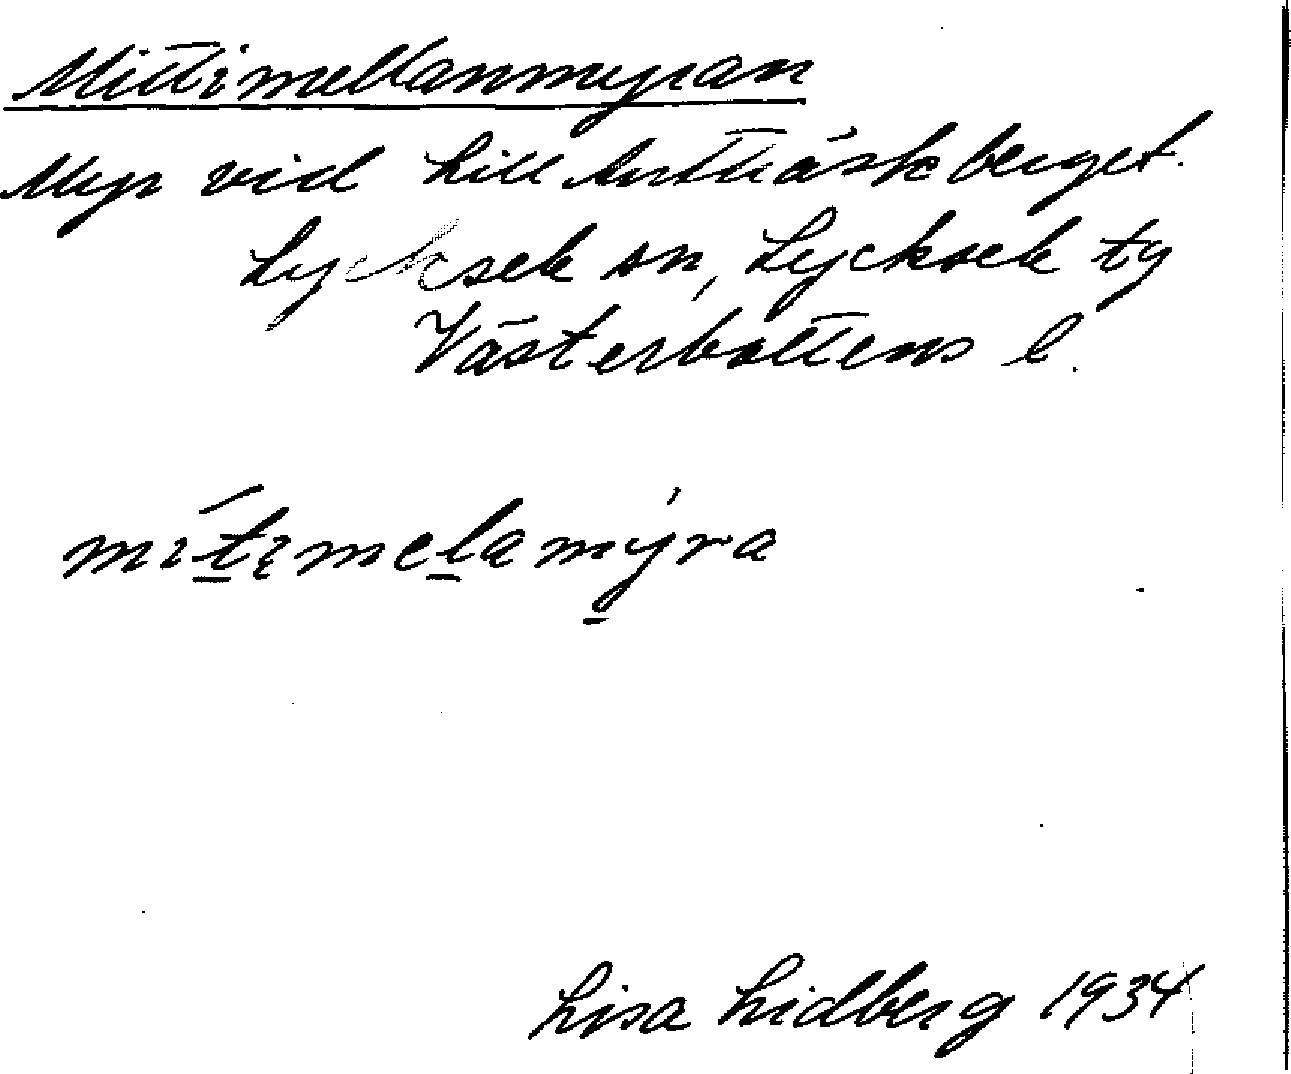 Mittimellanmyran
Myr vid Lill
Lycksele sn, Lycksele tg
Västerbottens l.
mı́tımelamy̍ra
Lisa Lidberg 1934